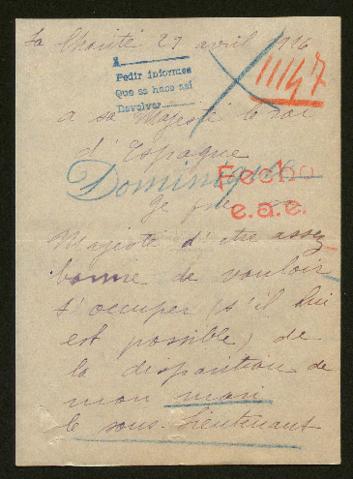 La Charité 29 avril 1916
11147
A
Pedir informes
Que se hace así
Devolver
a sa Majesté le roi
d'Espagne
Dominique
Fecho
e.a.e.
Je prie sa
Majesté d'être assez
bonne de vouloir
s'occuper (s'il lui
est possible) de
la disparition de
mon mari
le sous-lieutenant